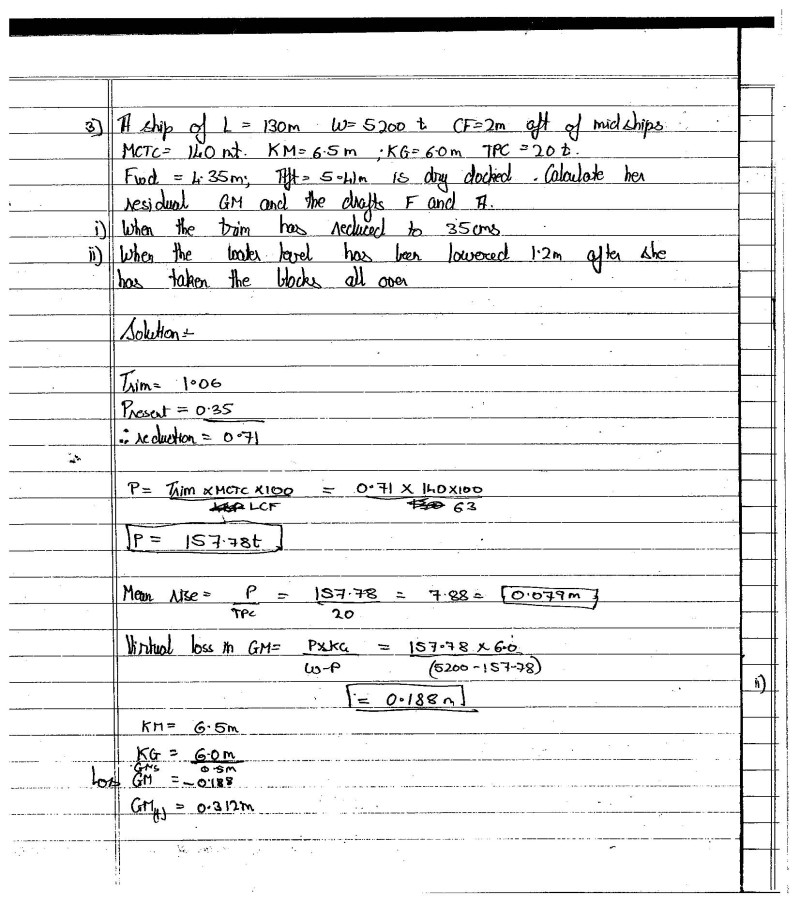 3] A ship of L = 130m W= 5200 t CF=2m aft of midships
MCTC= 140 mt. KM= 6.5 m ; KG= 6.0m TPC = 20 t.
Fwd = 4.35m; Aft= 5.41m is dry docked. Calculate her
residual GM and the drafts F and A.
i) When the trim has reduced to 35cms
ii) When the water level has been lowered 1.2m after she
has taken the blocks all over
Solution:-
Trim= 1.06
Present = 0.35
∴ reduction = 0.71
P= Trim x MCTC x100 / LCF = 0.71 X 140X100 / 63
P = 157.78t
Mean rise = P / TPC = 157.78 / 20 = 7.88 = 0.079m
Virtual loss in GM= PxKG / W-P = 157.78 x 6.0 / (5200-157.78)
= 0.188m
ii)
KM= 6.5m
KG = 6.0m
GMs 0.5m
Loss GM = -0.188
GM(f) = 0.312m